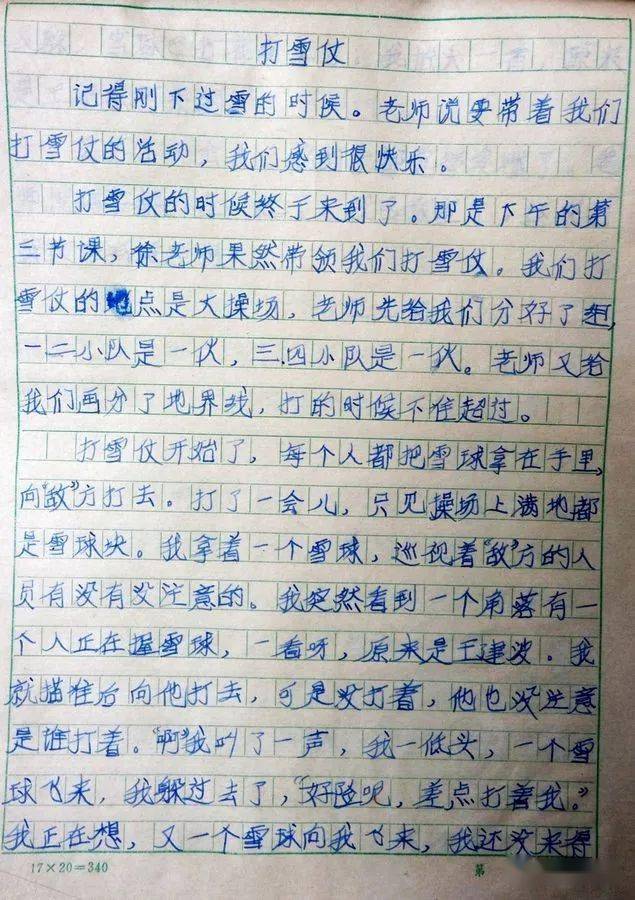 打雪仗
记得刚下过雪的时候。老师说要带着我们
打雪仗的活动，我们感到很快乐。
打雪仗的时候终于来到了。那是下午的第
三节课，徐老师果然带领我们打雪仗。我们打
雪仗的地点是大操场，老师先给我们分好了组，
一二小队是一伙，三.四小队是一伙。老师又给
我们画分了地界线，打的时候不准超过。
打雪仗开始了，每个人都把雪球拿在手里，
向“敌”方打去。打了一会儿，只见操场上满地都
是雪球块。我拿着一个雪球，巡视着“敌”方的人
员有没有没注意的。我突然看到一个角落有一
个人正在握雪球，一看呀，原来是王建波。我
就描准后向他打去，可是没打着，他也没注意
是谁打着。“啊”我叫了一声，我一低头，一个雪
球飞来，我躲过去了，“好险呢，差点打着我。”
我正在想，又一个雪球向我飞来，我还没来得
17×20=340
第